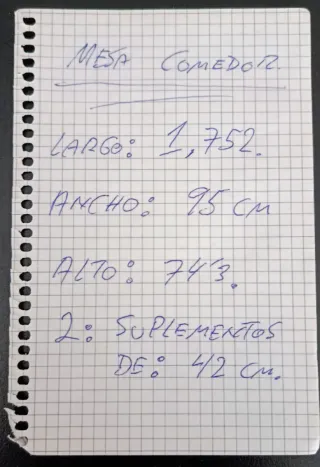 MESA COMEDOR.
LARGO: 1,752.
ANCHO: 95 CM
ALTO: 74'3.
2: SUPLEMENTOS
DE: 42 CM.